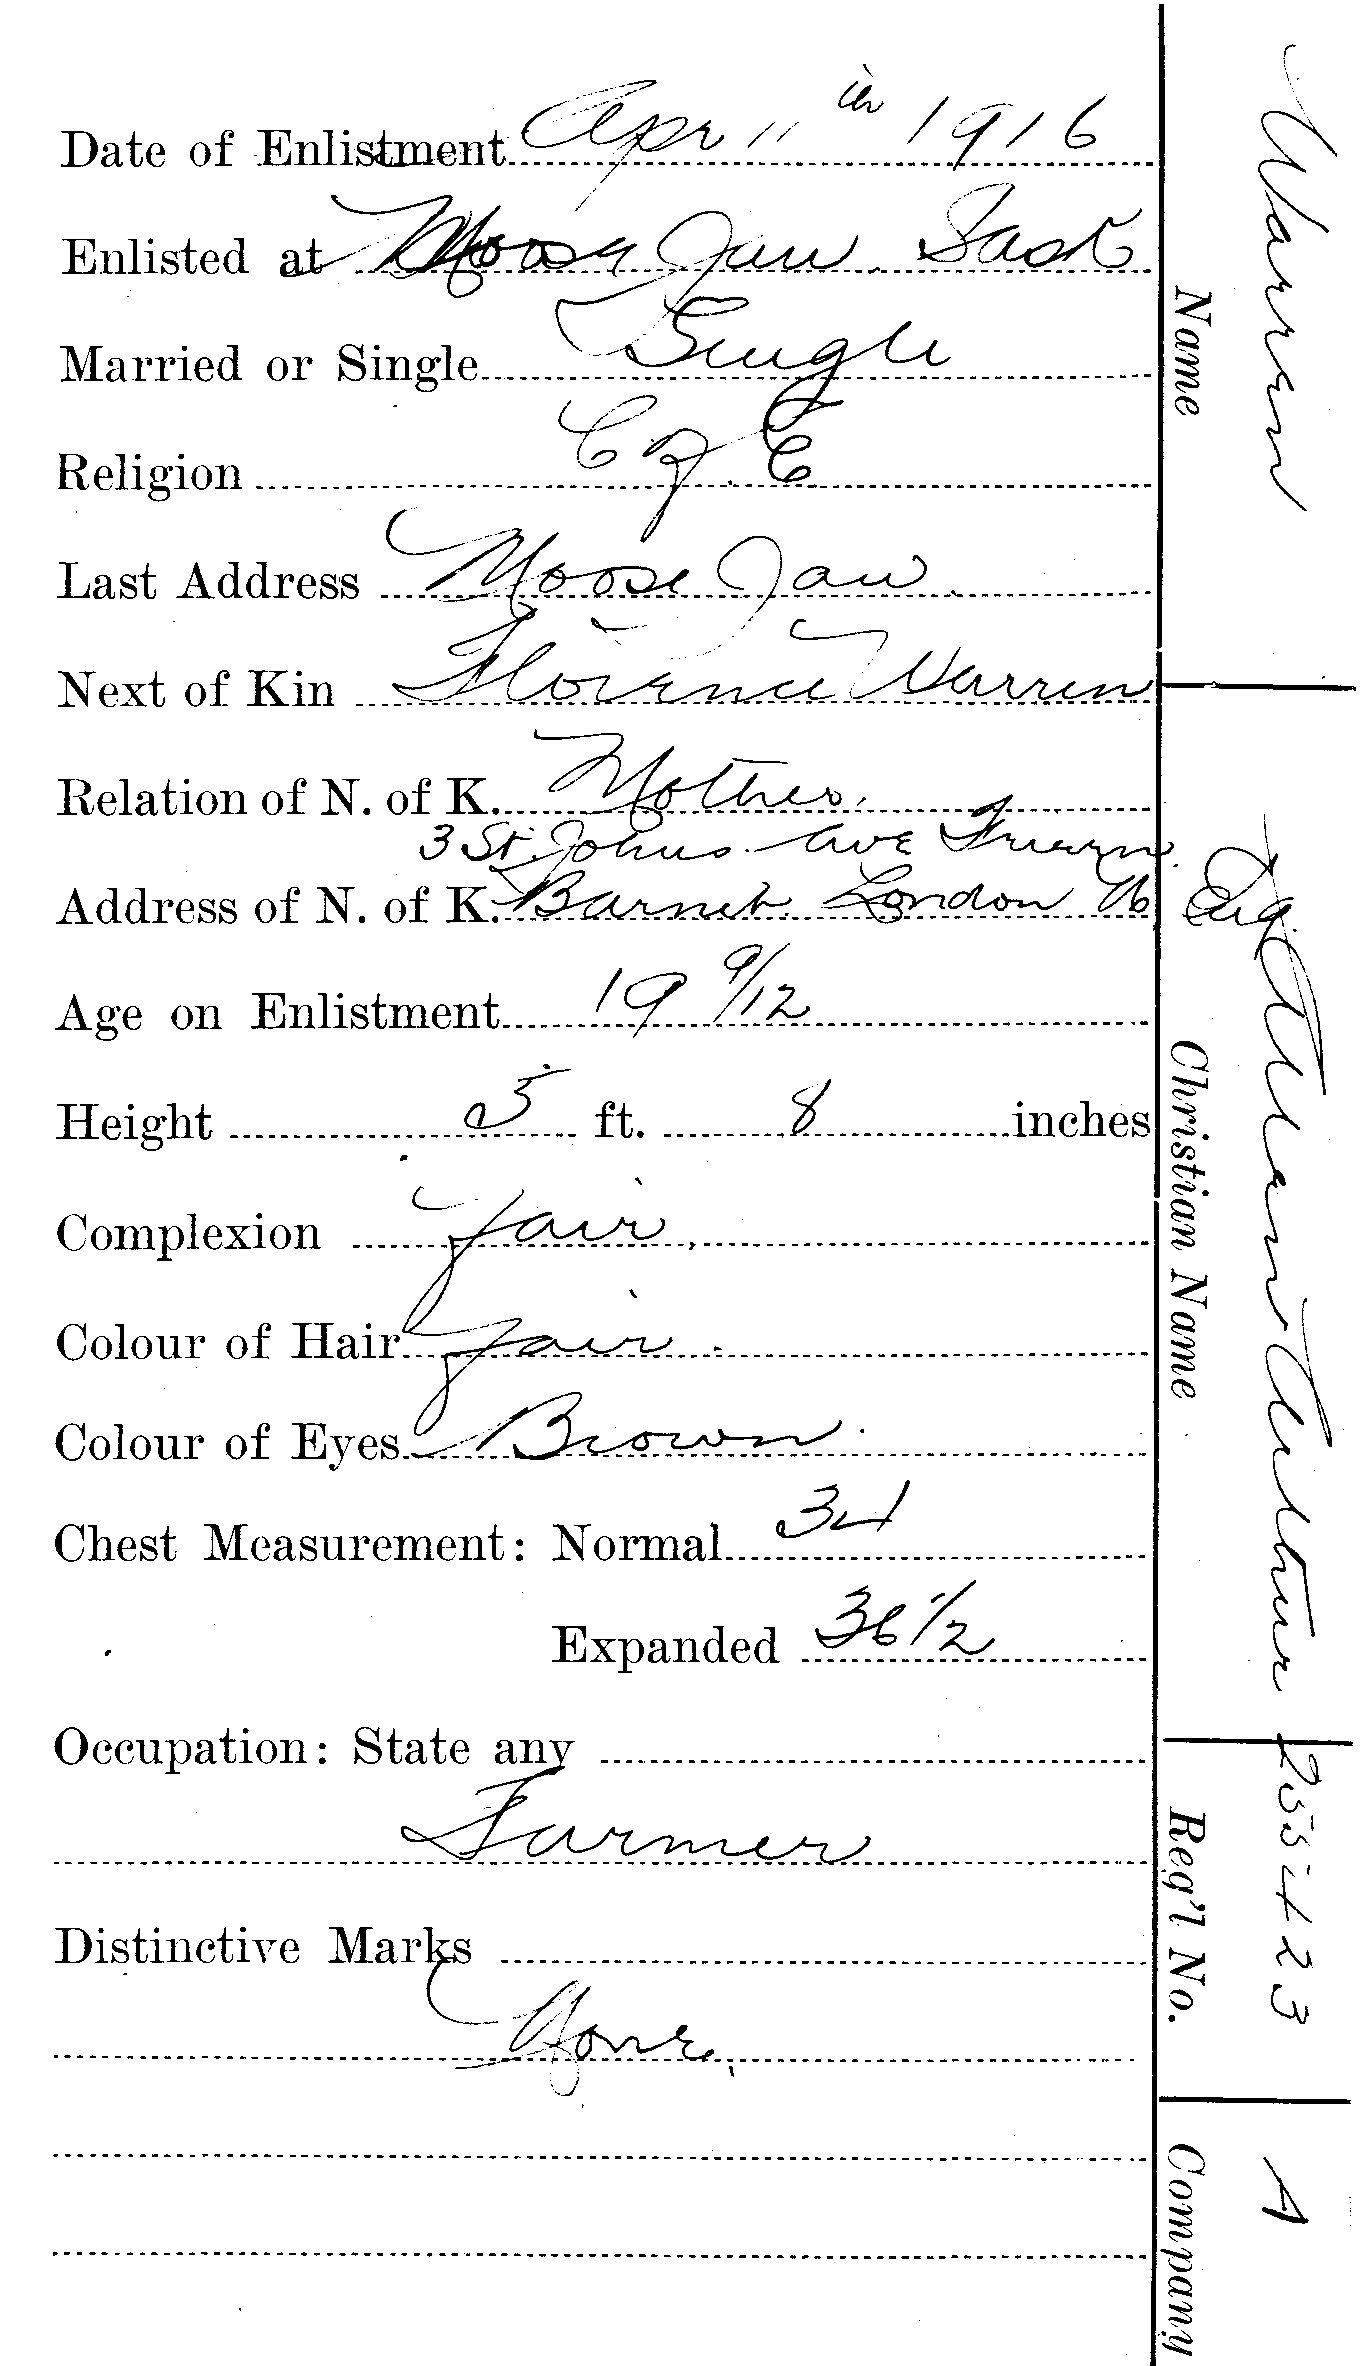 Date of Enlistment Apr 11th 1916
Enlisted at Moose Jaw Sask
Married or Single Single
Religion C of E
Last Address Moose Jaw
Next of Kin Florence Warren
Relation of N. of K. Mother
3 St Johns Ave Friern
Address of N. of K. Barnet London N Eng
Age on Enlistment 19 9/12
Height 5 ft. 8 inches
Complexion Fair
Colour of Hair Fair
Colour of Eyes Brown
Chest Measurement: Normal 34
Expanded 36 1/2
Occupation: State any
Farmer
Distinctive Marks
None
Warren
Name
Arthur
Christian Name
Reg'l No.
A
Company